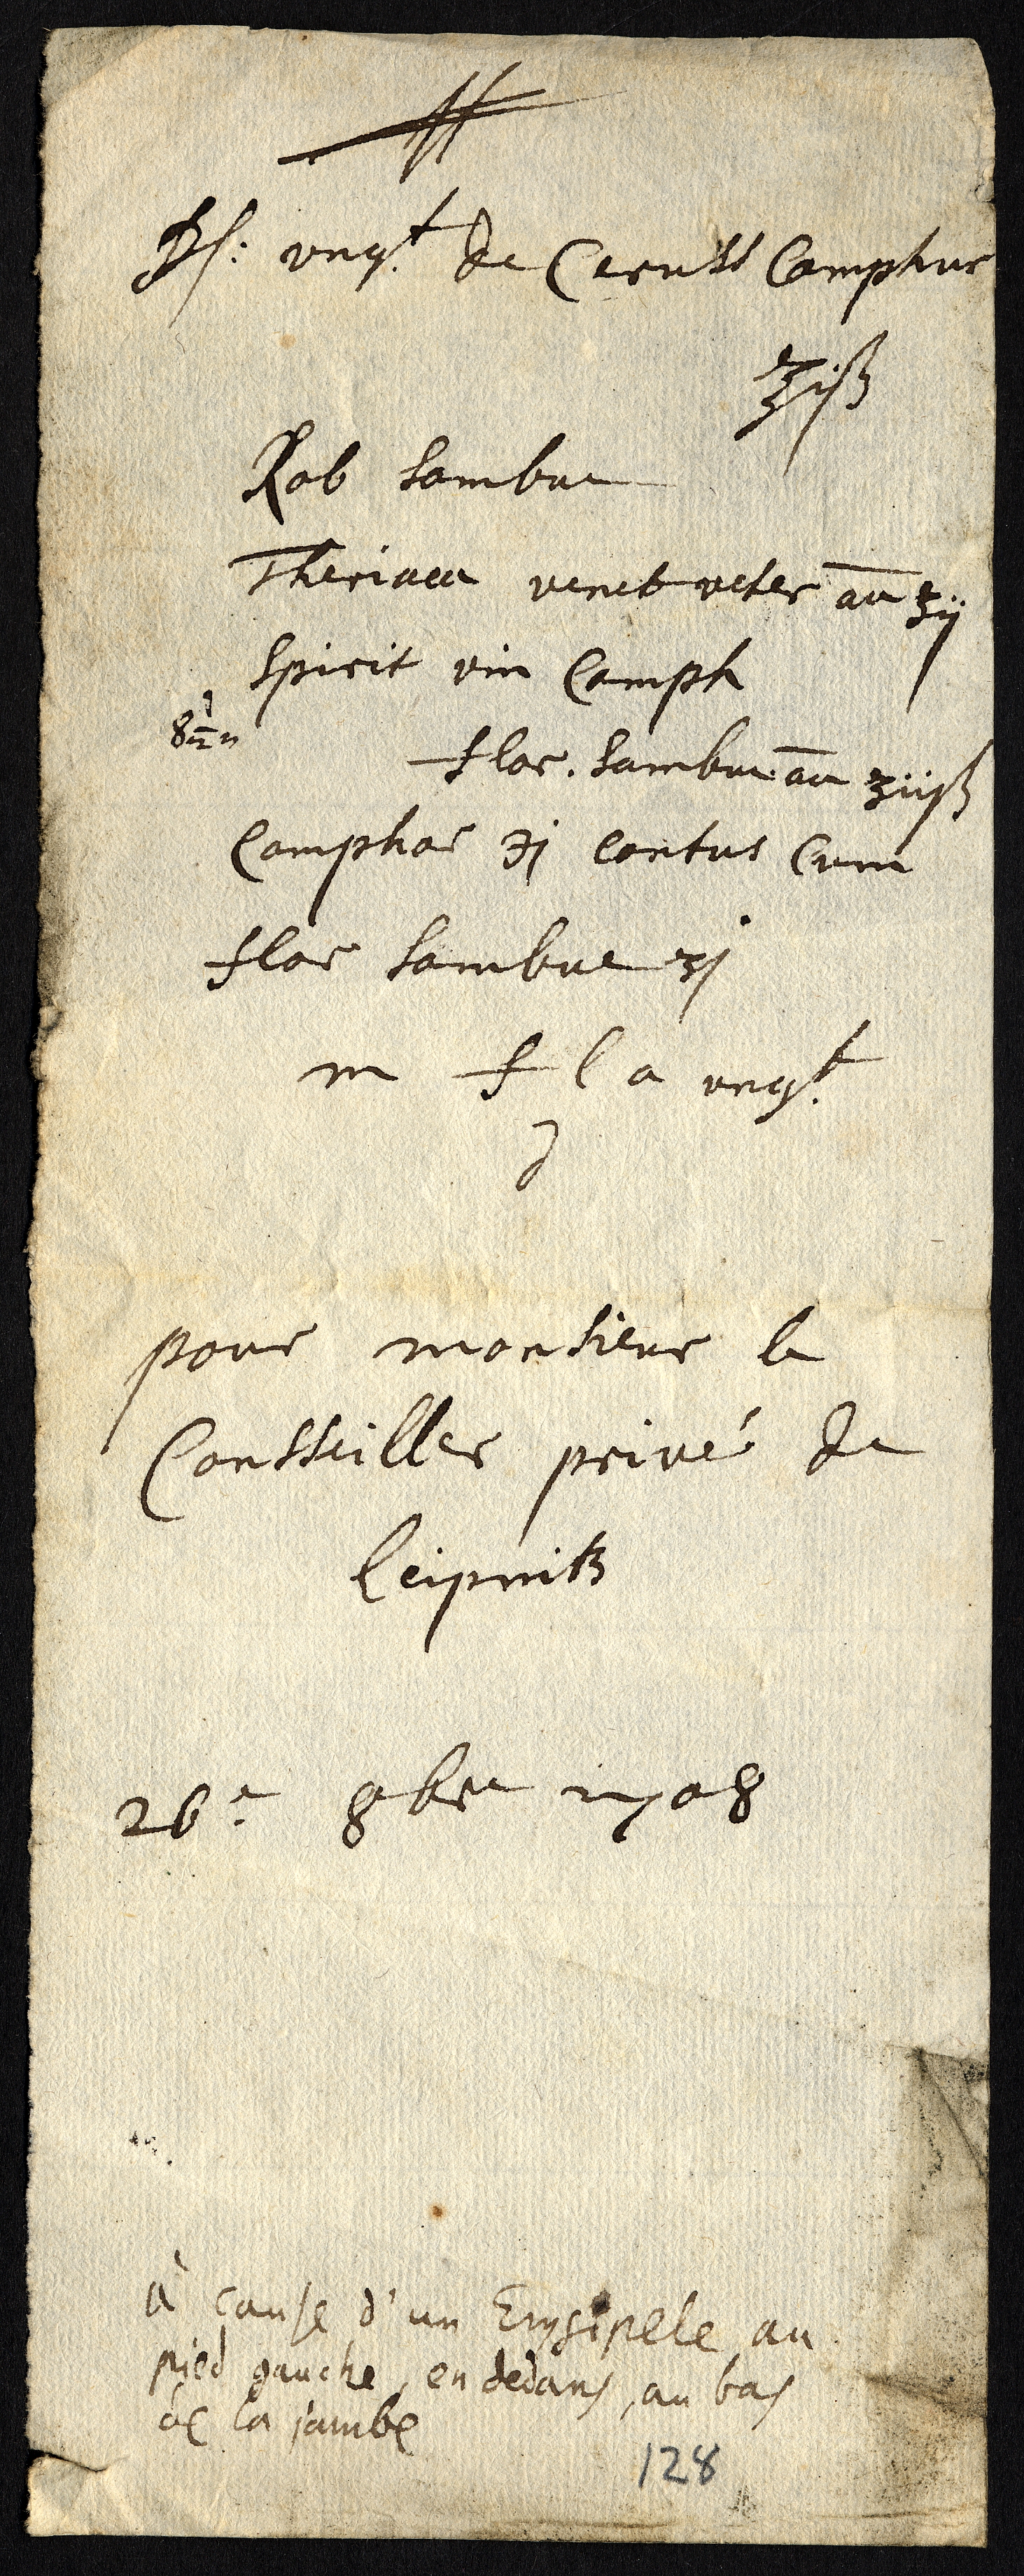 ℞: ungt de Ceruss Camphor
℥iß
Rob Sambuc
Theriaca venet veter aā ʒij
Spirit vin Camph
flor. Sambuc aā ʒiiß
Camphor ℈j contus Cum
flor Sambuc ʒj
m f l a ungt
d
pour monsieur le
Consseiller privé de
Leipnitz
26e 8bre 1708
à cause d'un Erysipele au
pied gauche, en dedans, au bas
de la jambe
128